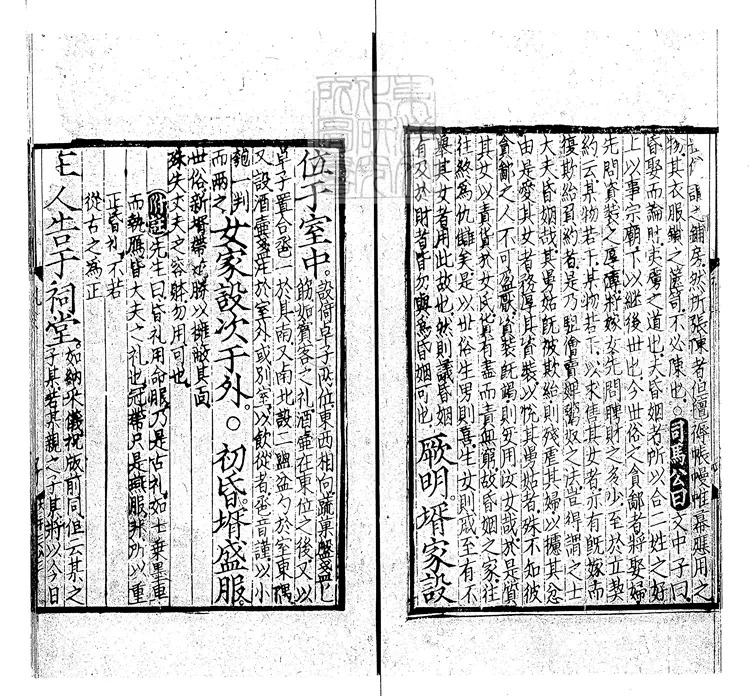 世俗謂之鋪房然所張陳者但氊褥帳幔帷幕應用之
物其衣服鎻之篋笥不必陳也○司馬公曰文中子曰
昏娶而論財夷虜之道也夫昏姻者所以合二姓之好
上以事宗廟下以繼後世也今世俗之貪鄙者將娶婦
先問資裝之厚薄將嫁女先問聘財之多少至於立契
約云某物若干某物若干以求售其女者亦有既嫁而
復欺紿負約者是乃駔儈賣婢鬻奴之法豈得謂之士
大夫昏姻哉其舅姑既被欺紿則殘虐其婦以攄其忿
由是愛其女者務厚其資裝以悅其舅姑者殊不知彼
貪鄙之人不可盈厭資裝既竭則安用汝女哉於是質
其女以責貨於女氏貨有盡而責無窮故昏姻之家往
往終為仇讎矣是以世俗生男則喜生女則戚至有不
舉其女者用此故也然則議昏姻
有及於財者皆勿與為昏姻可也 厥明壻家設
位于室中 設倚卓子兩位東西相向蔬果盤盞匕
筯如賓客之礼酒壺在東位之後又以
卓子置合卺一於其南又南北設二盥盆勺於室東隅
又設酒壺盞注於室外或別室以飲從者卺音謹以小
匏一判
而兩之 女家設次于外○初昏壻盛服
世俗新壻帶花勝以擁蔽其面
殊失丈夫之容躰勿用可也
附註先生曰昏礼用命服乃是古礼如士乗墨車
而執鴈皆大夫之礼也冠帶只是燕服非所以重
正昏礼不若
從古之為正
主人告于祠堂 如納采儀祝版前同但云某之
子某若某親之子某將以今日